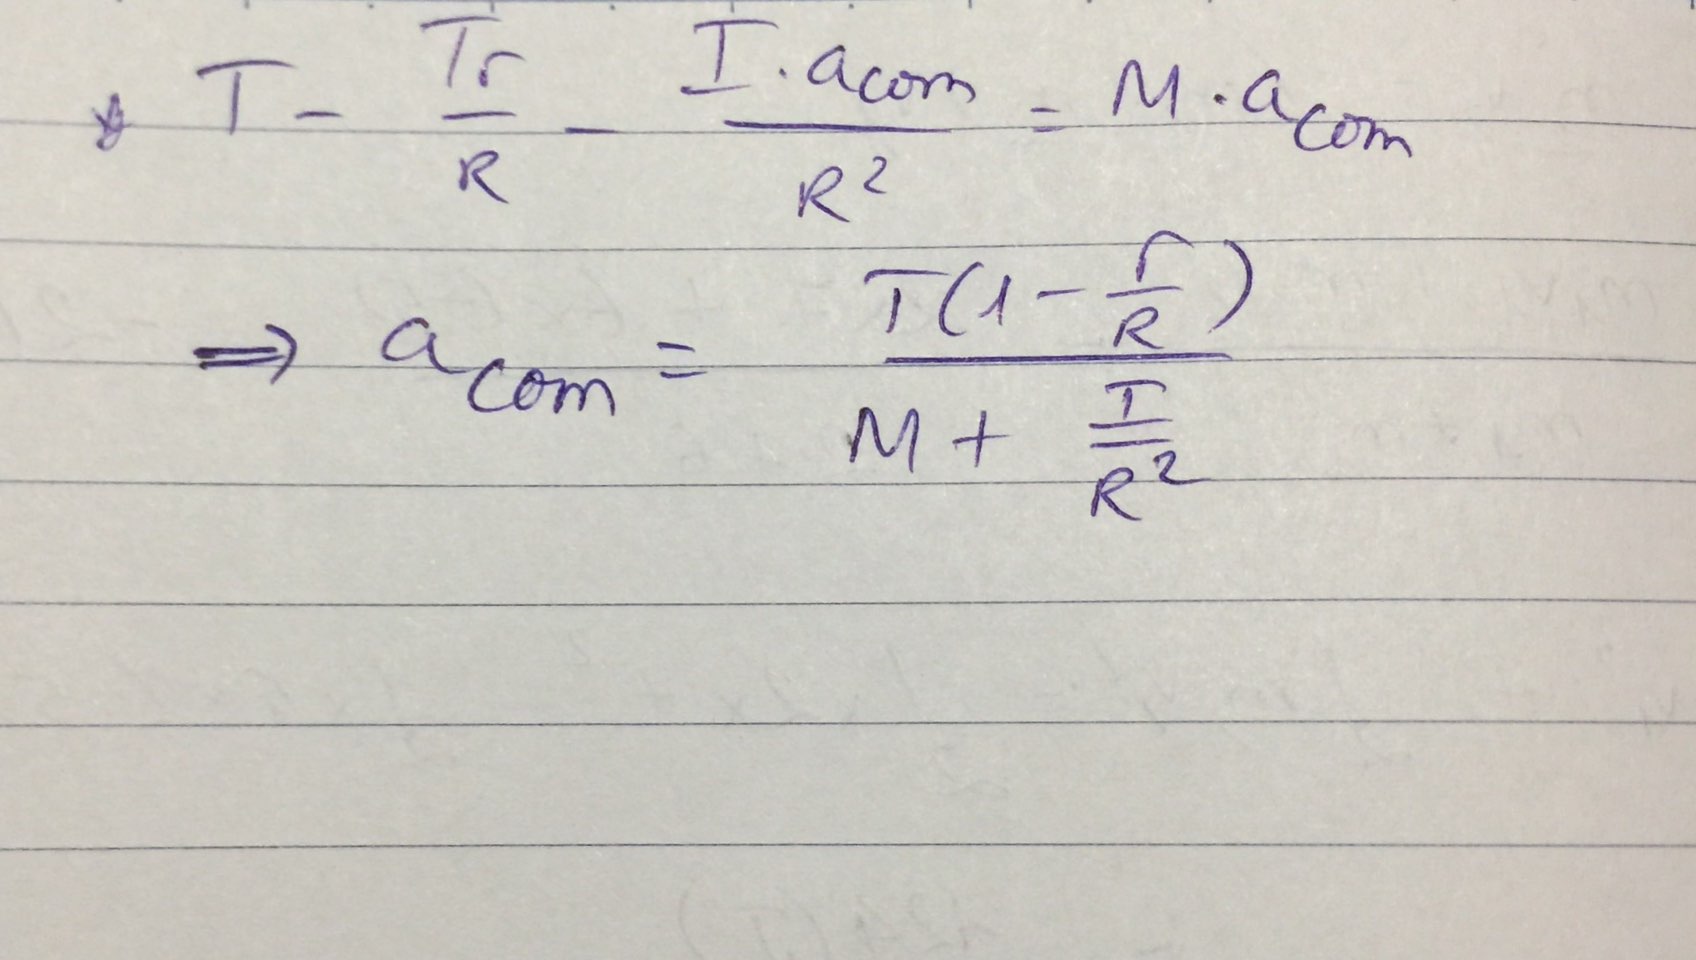 * T - Tr/R - I · a_com/R² = M · a_com
⇒ a_com = T(1 - r/R)/(M + I/R²)